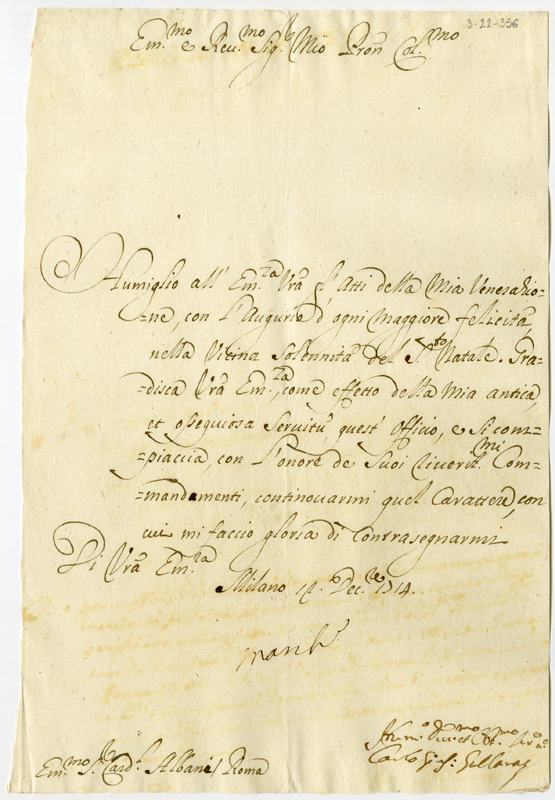 3-22-356
Em.mo e Reu.mo Sig.r Mio Pron Col.mo
Humiglio all' Em.za Vrã gl' Atti della Mia Venerazio-
=ne, con l'Augurio d'ogni maggiore felicità,
nella Vicina Solennità del S.to Natale. Gra-
=disca Vrã Em.za, come effetto della Mia antica,
et osequiosa Servitù, quest' officio, e Si com-
=piaccia, con l'onore de Suoi riverit.mi Com-
=mandamenti, continouarmi quel Carattere, con
cui mi faccio gloria di Contrasegnarmi
Di Vrã Em.za
Milano 12. Dec.re 1714.
Em.mo S.r Card.l Albani / Roma
Carlo